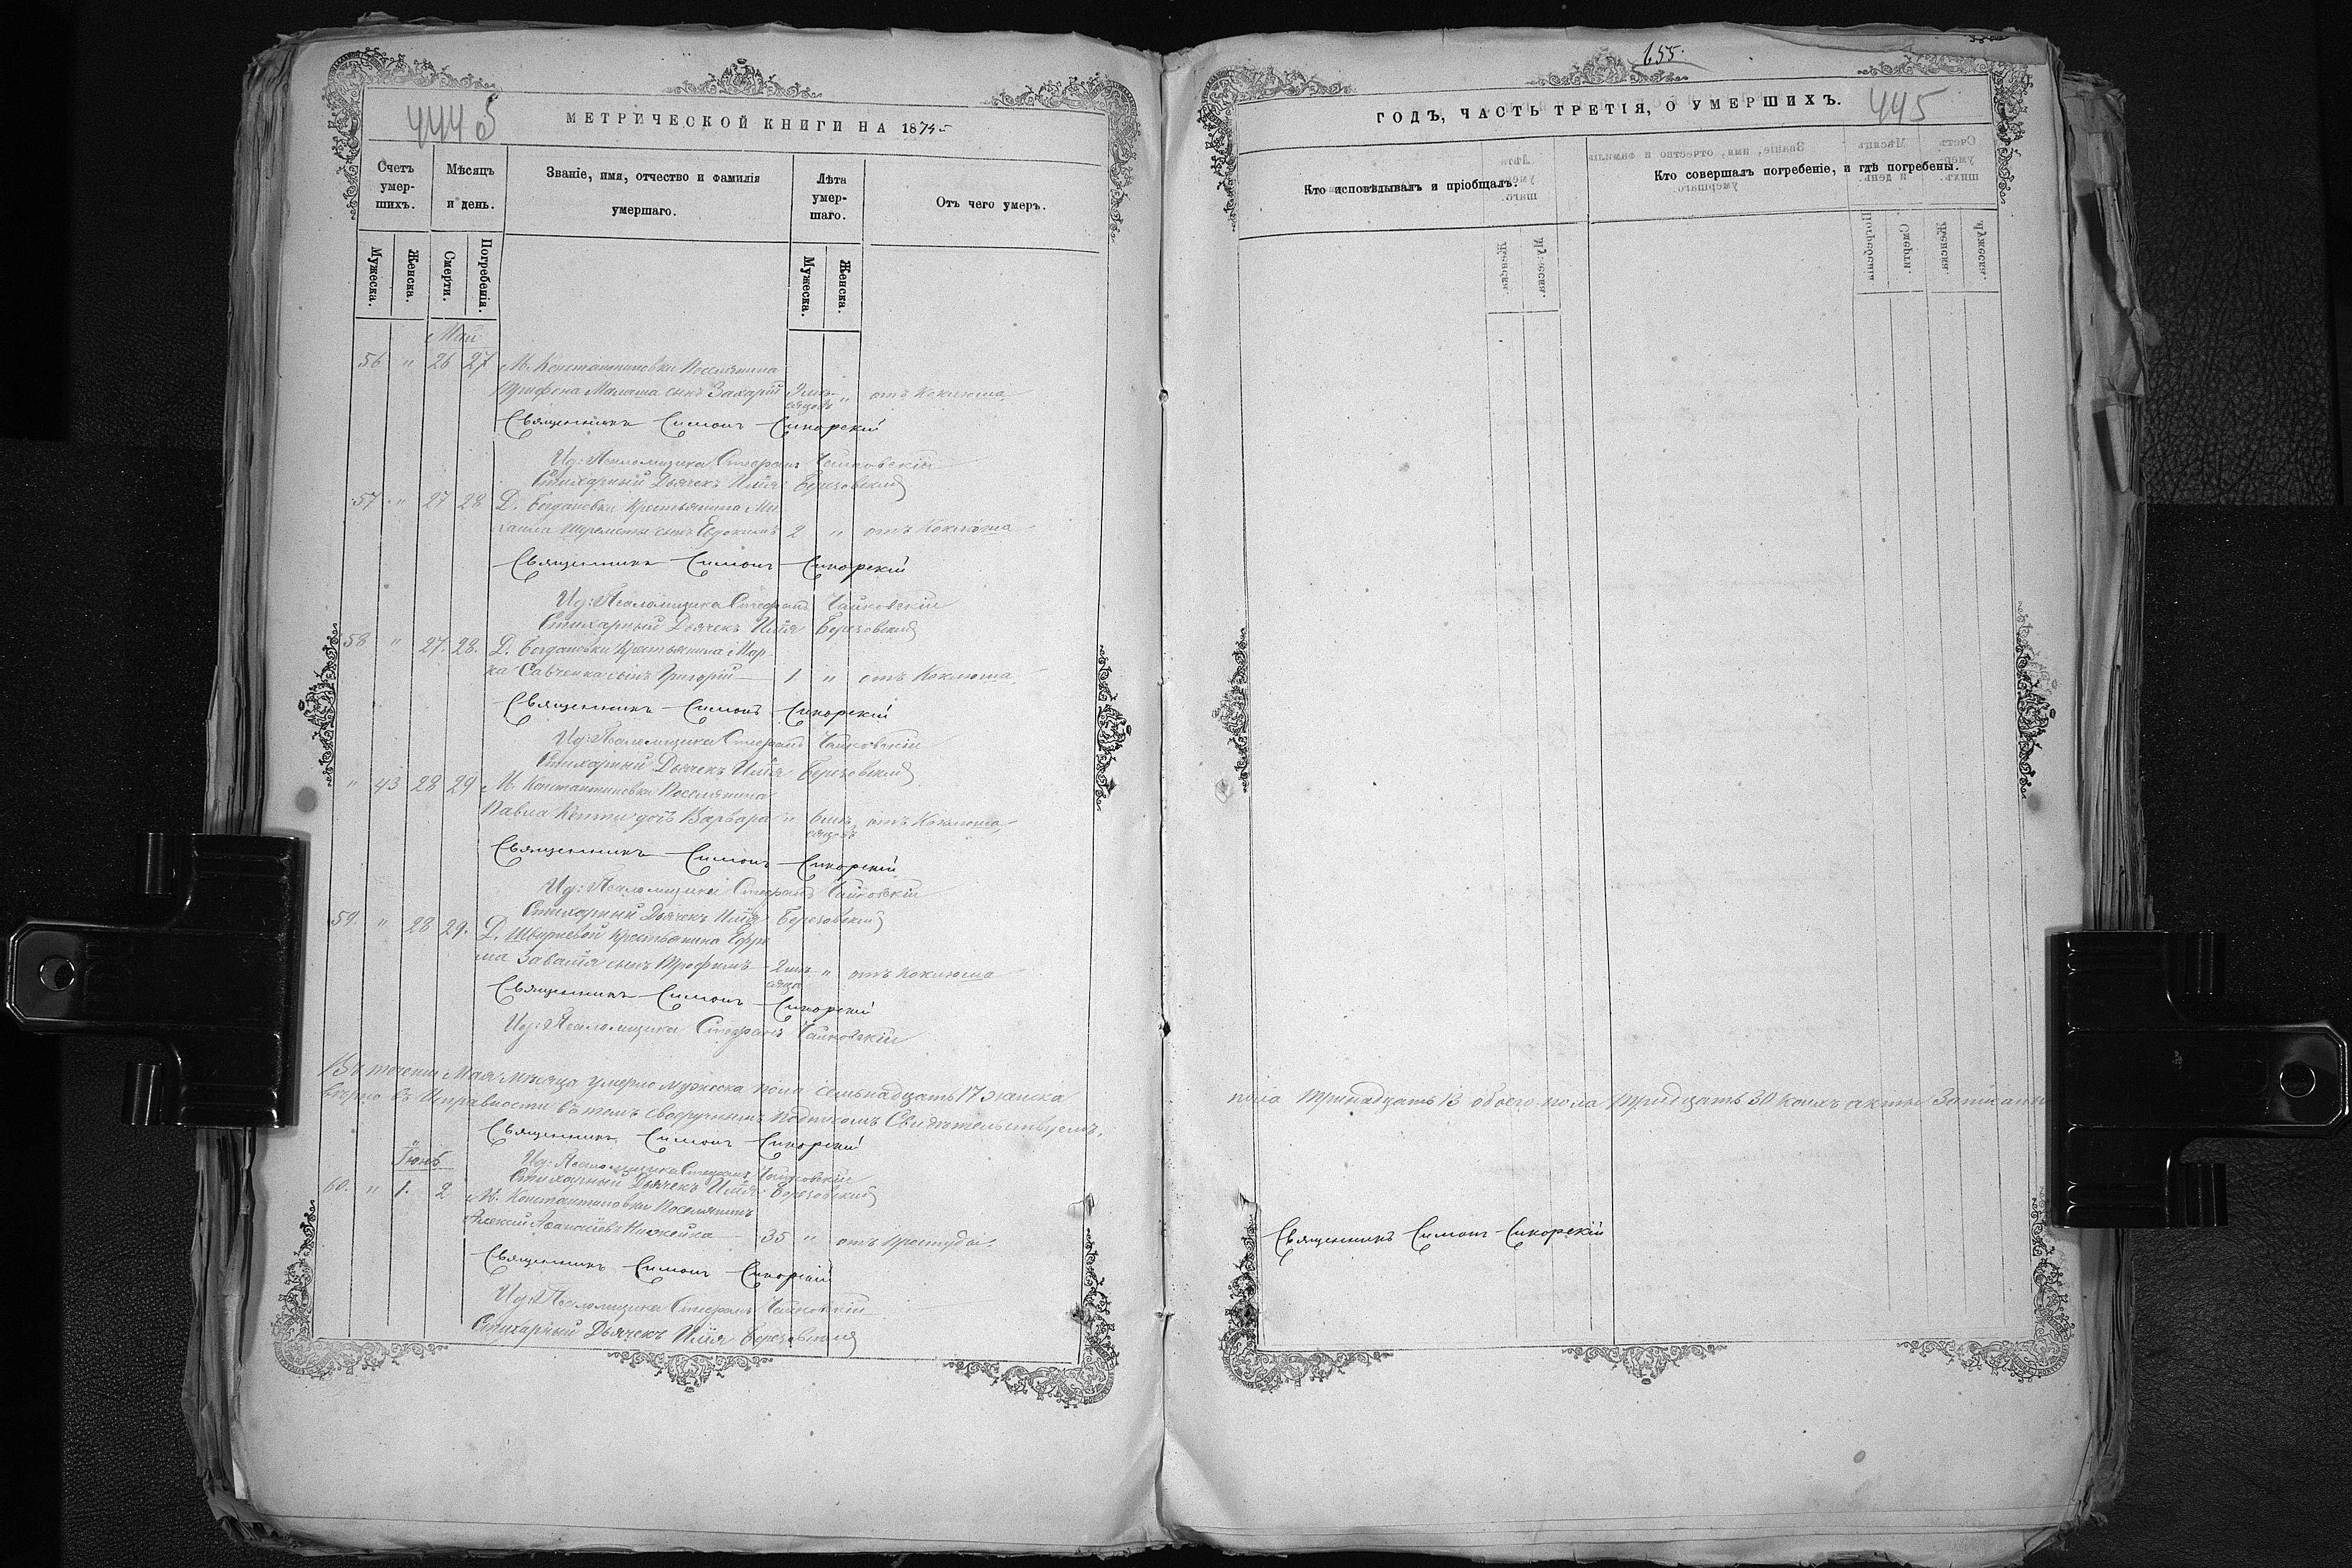 444 об
МЕТРИЧЕСКОЙ КНИГИ НА 1874
Счетъ умер-шихъ.
Мѣсяцъ и день.
Званіе, имя, отчество и фамилія умершаго.
Лѣта умер-шаго.
Отъ чего умеръ.
Мужеска.
Женска.
Смерти.
Погребенія.
Мужеска.
Женска.
Май
56 " 26 27 М. Константиновки Поселянина
Трифона сынъ Захарій 9 мѣ-сяцовъ " отъ Коклюша
Священникъ Симонъ Сикорскій
Ид: Псаломщика Стефанъ Чайковскій
Стихарный Дьячекъ Илія Березовскій
57 " 27 28 Д. Богдановки Крестьянина Ми
хаила Шереметы сынъ Евдокимъ 2 " отъ Коклюша
Священникъ Симонъ Сикорскій
Ид: Псаломщика Стефанъ Чайковскій
Стихарный Дьячекъ Илія Березовскій
58 " 27. 28. Д. Богдановки Крестьянина Мар
ка Савченка сынъ Григорій 1 " отъ Коклюша
Священникъ Симонъ Сикорскій
Ид: Псаломщика Стефанъ Чайковскій
Стихарный Дьячекъ Илія Березовскій
" 43 28 29 М. Константиновки Поселянина
Павла дочь Варвара " 6 мѣ-сяцовъ отъ Коклюша
Священникъ Симонъ Сикорскій
Ид: Псаломщика Стефанъ Чайковскій
Стихарный Дьячекъ Илія Березовскій
59. " 28 29. Д. Крестьянина Ефре
ма сынъ Трофимъ 2 мѣ-сяца " отъ Коклюша
Священникъ Симонъ Сикорскій
Ид: Псаломщика Стефанъ Чайковскій
Въ теченіи Мая мѣсяца умерло мужеска пола семьнадцать 17 женска
вѣрно въ Исправности въ томъ своеручнымъ подписомъ Свидѣтельствуемъ.
Священникъ Симонъ Сикорскій
Ид: Псаломщика Стефанъ Чайковскій
Стихарный Дьячекъ Илія Березовскій
Іюнь
60. " 1. 2. М. Константиновки Поселянинъ
Алексій 35 " отъ Простуды.
Священникъ Симонъ Сикорскій
Ид: Псаломщика Стефанъ Чайковскій
Стихарный Дьячекъ Илія Березовскій
655.
ГОДЪ, ЧАСТЬ ТРЕТІЯ, О УМЕРШИХЪ.
445
Кто исповѣдывалъ и пріобщалъ.
Кто совершалъ погребеніе, и гдѣ погребены.
пола тринадцать 13 обоего пола тридцать 30 коихъ акты Записаны
Священникъ Симонъ Сикорскій